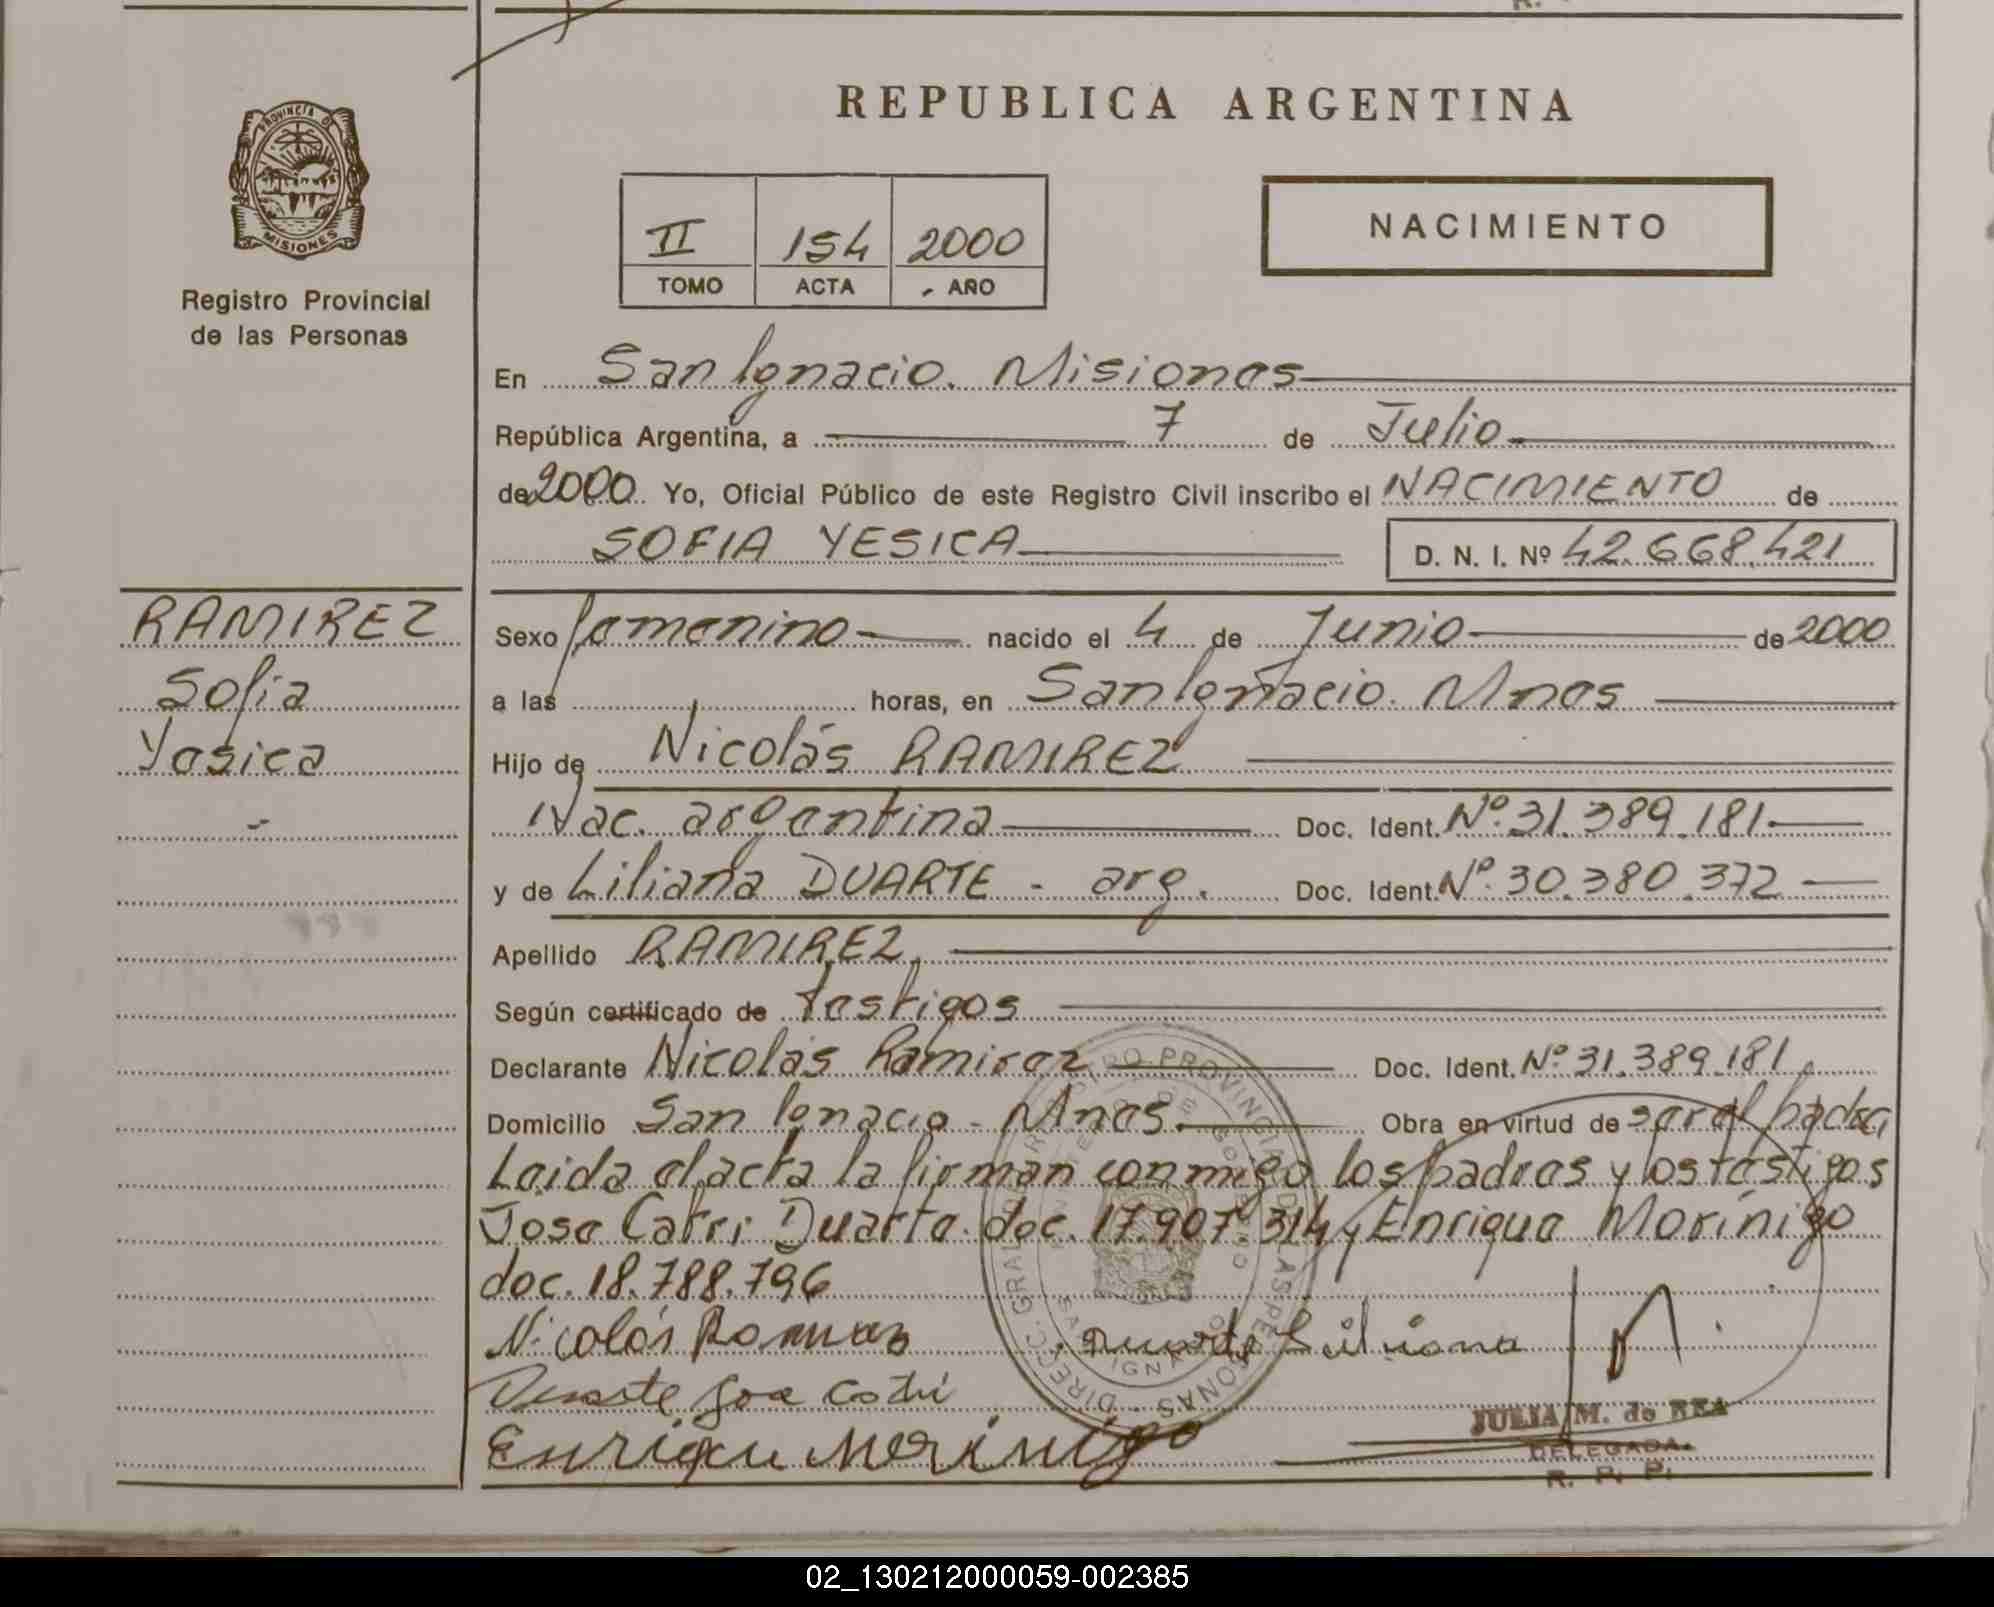 REPUBLICA ARGENTINA
PROVINCIA DE
MISIONES
Registro Provincial
de las Personas
II 154 2000
TOMO ACTA AÑO
NACIMIENTO
En San Ignacio. Misiones
República Argentina, a 7 de Julio
de 2000 Yo, Oficial Público de este Registro Civil inscribo el NACIMIENTO de
SOFIA YESICA D. N. I. Nº 42.668.421
RAMIREZ
Sofia
Yesica
Sexo femenino nacido el 4 de Junio de 2000
a las horas, en San Ignacio. Mnes
Hijo de Nicolás RAMIREZ
Nac. argentina Doc. Ident. Nº 31.389.181.
y de Liliana DUARTE - arg. Doc. Ident. Nº 30.380.372
Apellido RAMIREZ.
Según certificado de testigos
Declarante Nicolás Ramirez Doc. Ident. Nº 31.389.181
Domicilio San Ignacio - Mnes. Obra en virtud de ser el padre
Leida el acta la firman conmigo los padres y los testigos
Jose Catri Duarte. doc. 17.907.314 y Enrique Morínigo
doc. 18.788.796
Nicolás Ramirez Duarte Liliana
Duarte Jose Catri
Enrique Morinigo
JULIA M. de REA
DELEGADA
R. P. P.
02_130212000059-002385